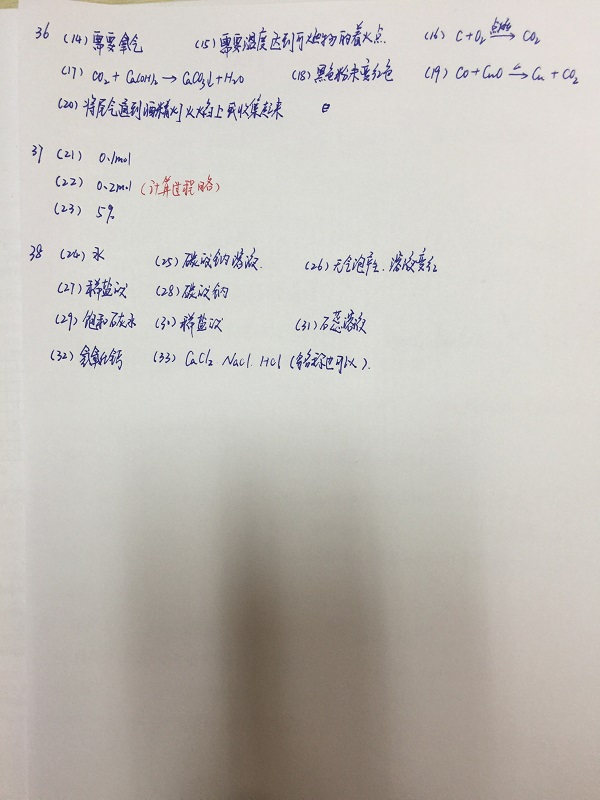 36 (14) 需要氧气 (15) 需要温度达到可燃物的着火点. (16) C+O₂ 点燃→ CO₂
(17) CO₂ + Ca(OH)₂ → CaCO₃↓ + H₂O (18) 黑色粉末变红色 (19) CO+CuO △→ Cu + CO₂
(20) 将尾气通到酒精灯火焰上或收集起来
37 (21) 0.1mol
(22) 0.2mol (计算过程略)
(23) 5%
38 (24) 水 (25) 碳酸钠溶液. (26) 无气泡产生. 溶液变红
(27) 稀盐酸 (28) 碳酸钠
(29) 饱和石灰水 (30) 稀盐酸 (31) 石蕊溶液
(32) 氢氧化钙 (33) CaCl₂. NaCl. HCl (写名称也可以).